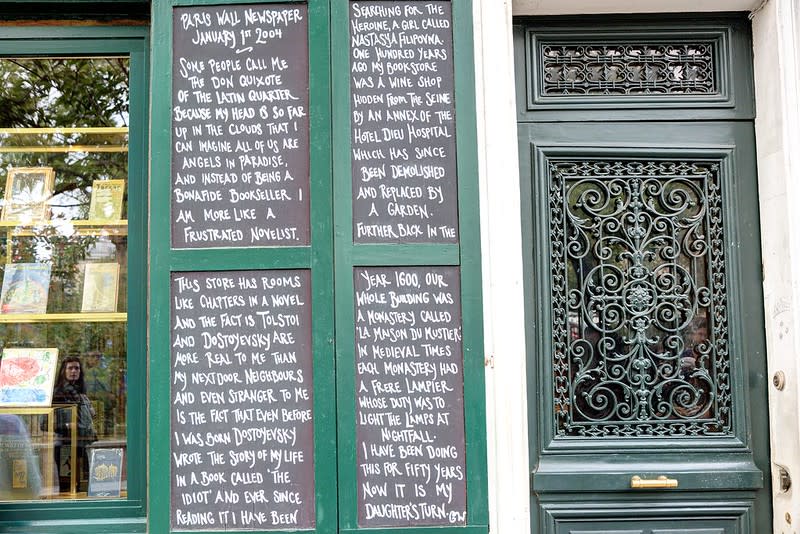 PARIS WALL NEWSPAPER
JANUARY 1ST 2004
SOME PEOPLE CALL ME
THE DON QUIXOTE
OF THE LATIN QUARTER
BECAUSE MY HEAD IS SO FAR
UP IN THE CLOUDS THAT I
CAN IMAGINE ALL OF US ARE
ANGELS IN PARADISE,
AND INSTEAD OF BEING A
BONAFIDE BOOKSELLER I
AM MORE LIKE A
FRUSTRATED NOVELIST.
THIS STORE HAS ROOMS
LIKE CHAPTERS IN A NOVEL
AND THE FACT IS TOLSTOI
AND DOSTOYEVSKY ARE
MORE REAL TO ME THAN
MY NEXT DOOR NEIGHBOURS
AND EVEN STRANGER TO ME
IS THE FACT THAT EVEN BEFORE
I WAS BORN DOSTOYEVSKY
WROTE THE STORY OF MY LIFE
IN A BOOK CALLED 'THE
IDIOT' AND EVER SINCE
READING IT I HAVE BEEN
SEARCHING FOR THE
HEROINE, A GIRL CALLED
NASTASYA FILIPOVNA.
ONE HUNDRED YEARS
AGO MY BOOKSTORE
WAS A WINE SHOP
HIDDEN FROM THE SEINE
BY AN ANNEX OF THE
HOTEL DIEU HOSPITAL
WHICH HAS SINCE
BEEN DEMOLISHED
AND REPLACED BY
A GARDEN.
FURTHER BACK IN THE
YEAR 1600, OUR
WHOLE BUILDING WAS
A MONASTERY CALLED
'LA MAISON DU MUSTIER'
IN MEDIEVAL TIMES
EACH MONASTERY HAD
A FRERE LAMPIER
WHOSE DUTY WAS TO
LIGHT THE LAMPS AT
NIGHTFALL.
I HAVE BEEN DOING
THIS FOR FIFTY YEARS
NOW IT IS MY
DAUGHTER'S TURN. GW